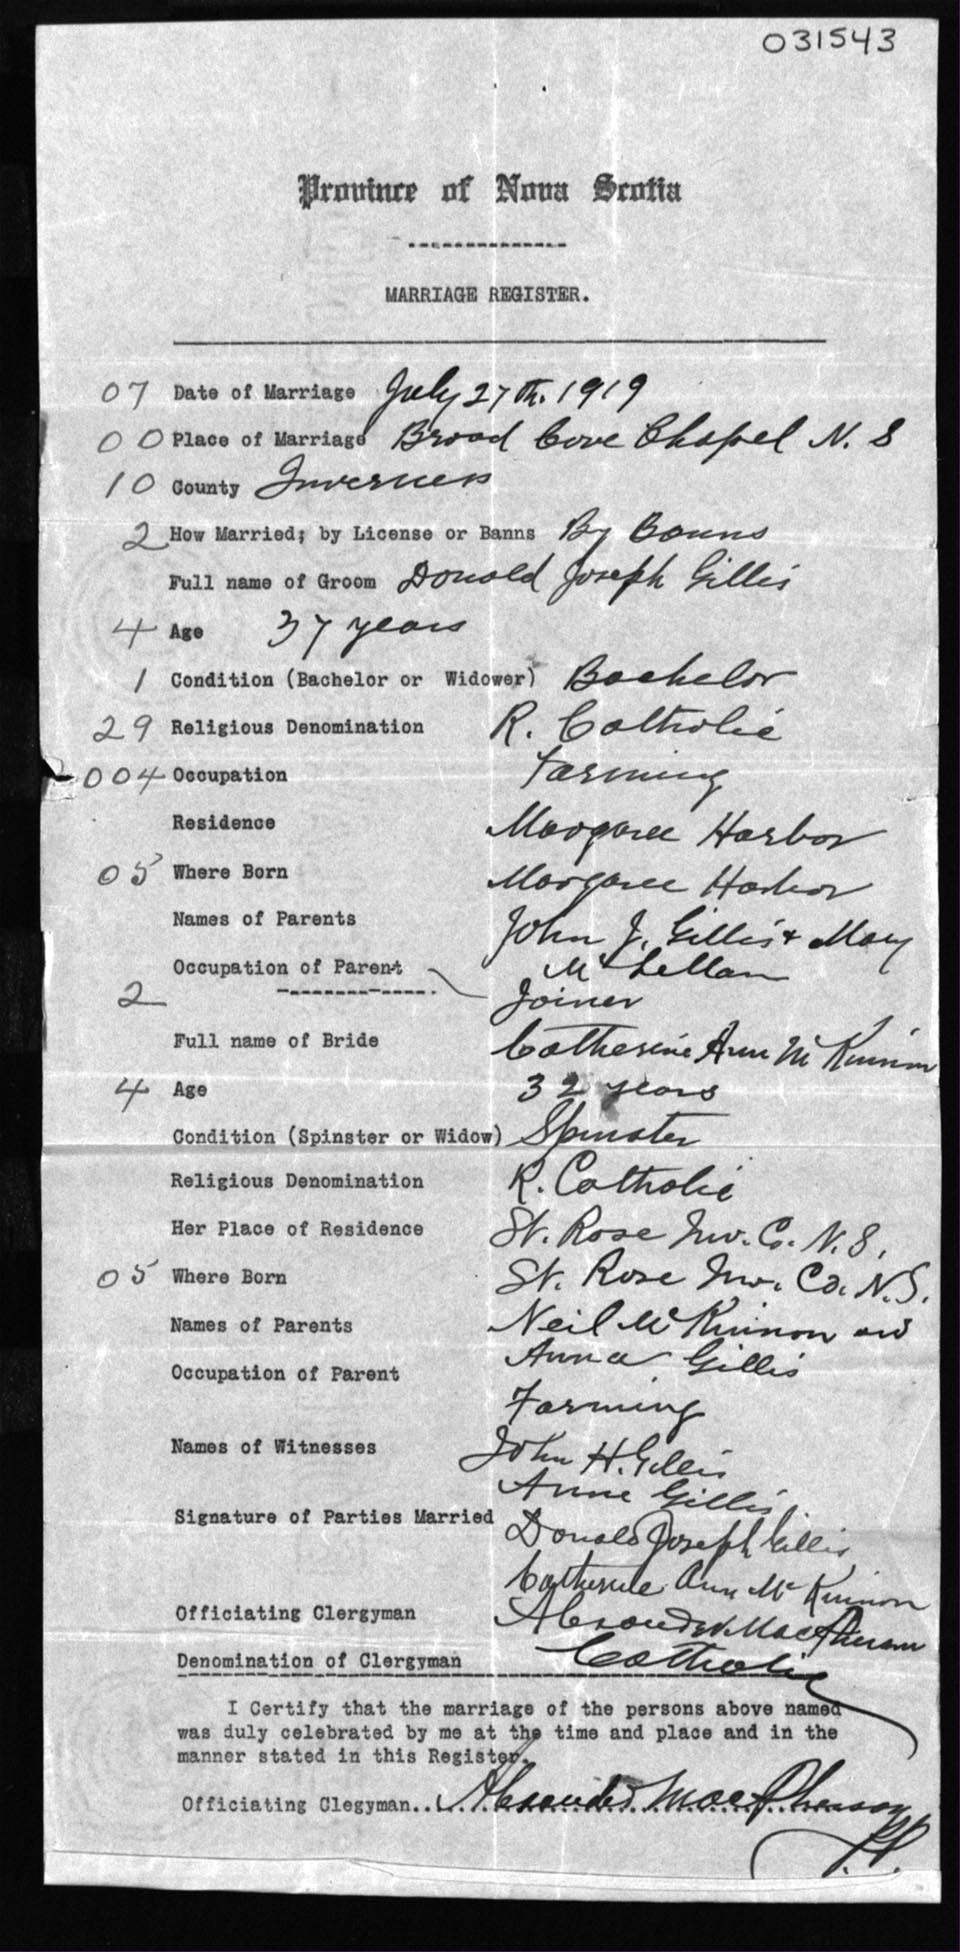 031543
Province of Nova Scotia
MARRIAGE REGISTER.
07 Date of Marriage July 27th. 1919
00 Place of Marriage Broad Cove Chapel N. S
10 County Inverness
2 How Married; by License or Banns By Banns
Full name of Groom Donald Joseph Gillis
4 Age 37 years
1 Condition (Bachelor or Widower) Bachelor
29 Religious Denomination R. Catholic
004 Occupation Farming
Residence Margaree Harbor
05 Where Born Margaree Harbor
Names of Parents John J. Gillis + Mary
McLellan
Occupation of Parent Joiner
2
Full name of Bride Catherine Ann McKinnon
4 Age 32 years
Condition (Spinster or Widow) Spinster
Religious Denomination R. Catholic
Her Place of Residence St. Rose Inv. Co. N. S.
05 Where Born St. Rose Inv. Co. N.S.
Names of Parents Neil McKinnon and
Anna Gillis
Occupation of Parent Farming
Names of Witnesses John H. Gillis
Anne Gillis
Signature of Parties Married Donald Joseph Gillis
Catherine Ann McKinnon
Officiating Clergyman Alexander MacPherson
Denomination of Clergyman Catholic
I Certify that the marriage of the persons above named
was duly celebrated by me at the time and place and in the
manner stated in this Register.
Officiating Clegyman.. Alexander MacPherson
P.P.